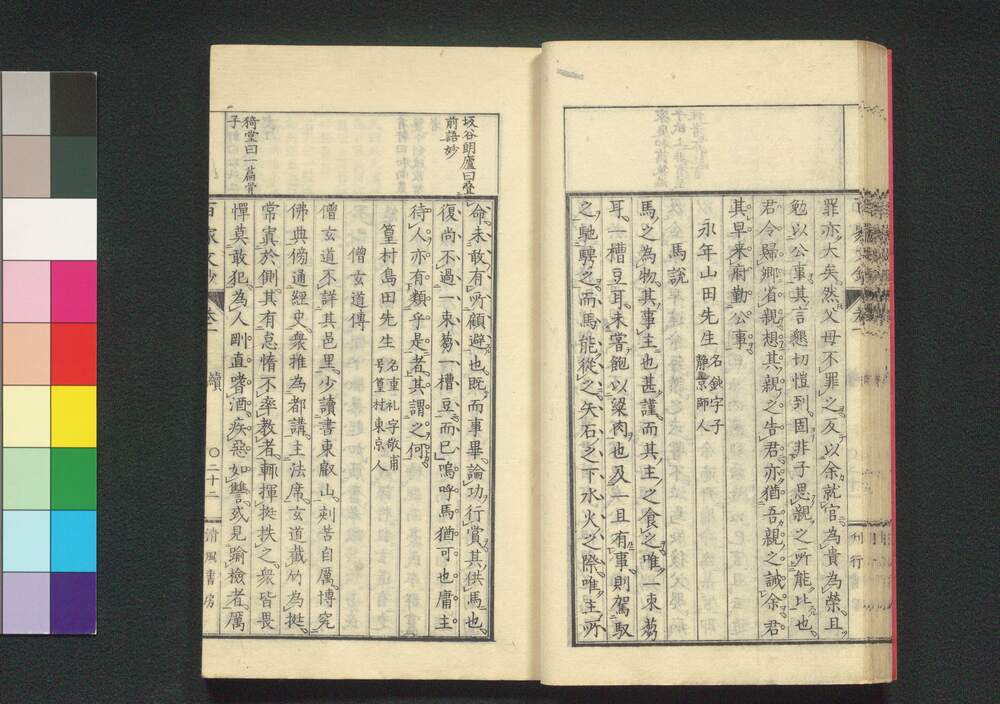 罪亦大矣然父母不罪之反以余就官為貴為榮且
勉以公事其言懇切愷到固非子思親之所能比也
君今歸鄉省親想其親之告君亦猶吾親之誡余君
其早来府勤公事
永年山田先生 名鈍字子静景師人
馬說
馬之為物其事主也甚謹而其主之食之唯一束蒭
耳一槽豆耳未嘗飽以粱肉也及一旦有事則駕馭
之馳騁之而馬能從之矢石之下水火之際唯主所
刊行
坂谷朗廬曰疊
前語妙
命未敢有所顧避也既而事畢論功行賞其供馬也
復尚不過一束蒭一槽豆而已嗚呼馬猶可也庸主
待人亦有類乎是者其謂之何
篁村島田先生 名重礼字敬甫号篁村東京人
僧玄道傳
僧玄道不詳其邑里少讀書東叡山刻苦自厲博究
佛典傍通經史衆推為都講主法席玄道截竹為挺
常寘於側其有怠惰不率教者輒揮挺抶之衆皆畏
憚莫敢犯為人剛直嗜酒疾惡如讐或見踰檢者厲
猗堂曰一篇骨
子
百家文鈔 卷一 續 〇二十二 清風書房